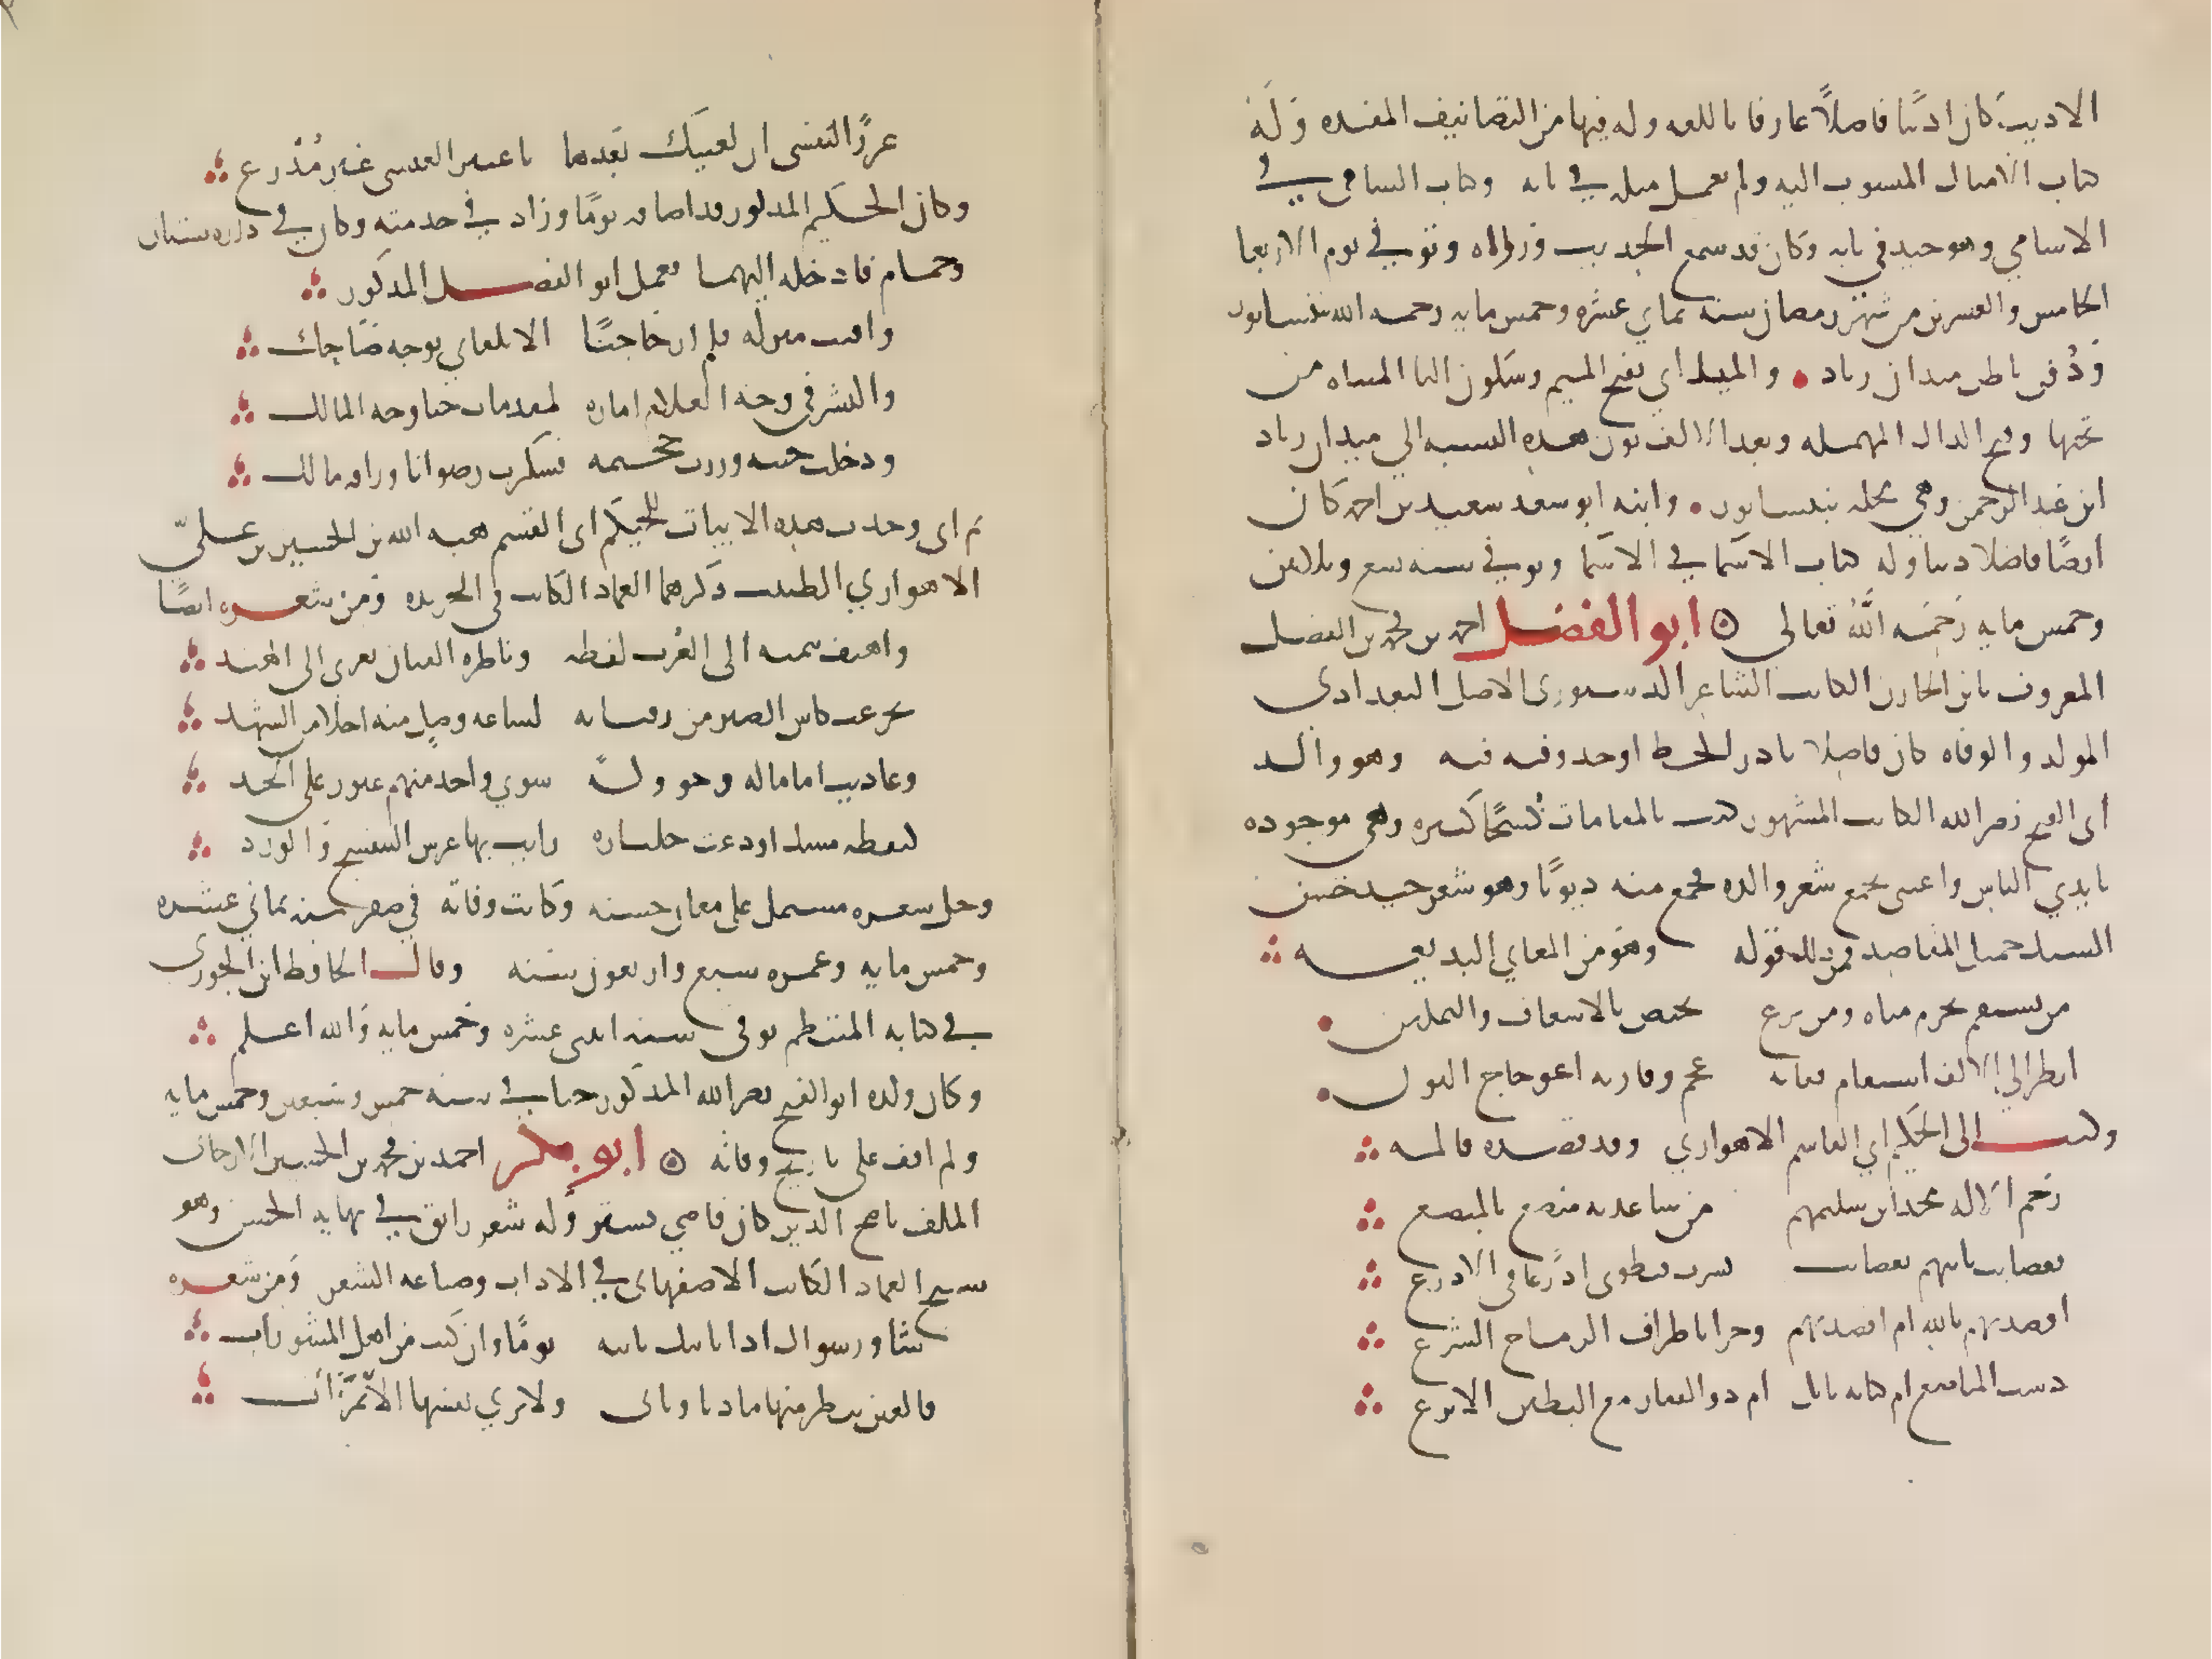 الاديب كان اديبا فاضلاً عارفا باللغه وله فيها من التصانيف المفيده وَلَه
كتاب الامثال المنسوب اليه ولم يعمل مثله في بابه وكتاب السامي في
الاسامي وهو جيد في بابه وكان قد سمع الحديث ورواه وتوفي يوم الاربعا
الخامس والعشرين من شهر رمضان سنه ثماني عشره وخمس مايه رحمه الله بنيسابور
وَدُفن باطن ميدان زياد • والميداني بفتح الميم وسكون اليا المثناه من
تحتها وفتح الدال المهمله وبعد الالف نون هذه النسبه الي ميدان زياد
ابن عبد الرحمن وهي محله بنيسابور • وابنه ابو سعد سعيد بن احمد كان
ايضًا فاضلا دينا وله كتاب الاسما في الاسما وتوفي سنه تسع وثلاثين
وخمس مايه رَحمَه الله تعالي ⊙ ابو الفضل احمد بن محمد بن الفضل
المعروف بابن الخازن الكاتب الشاعر الدينوري الاصل البغدادي
المولد والوفاه كان فاضلا نادر الخط اوحد وقته فيه وهو والد
ابي الفتح نصر الله الكاتب المشهور كتب بالمقامات نُسَخًا كثيره وهي موجوده
بايدي الناس واعتنى بجمع شعر والده فجمع منه ديوانًا وهو شعر جيد حسن
السبك جميل المقاصد فمن ذلك قوله وهو من المعاني البديعه
من يستقم يحرم مناه ومن يزغ يختص بالاسعاف والتمكين •
انظر الي الالف استقام ففاته عجم وفاز به اعوجاج النون •
وكتب الى الحكيم ابي القاسم الاهوازي وقد فصده فالمه
رَحم الاله مجدلين سليمهم من ساعديه مبضع بالمبضع
فعصايب تاتيهم بعصايب نشرت فتطوى اذرعا في الاذرع
افصدتهم بالله ام اقصدتهم وخزا باطراف الرماح الشرع
دست المباضع ام كنانه نابل ام ذو الفقار مع البطين الانزع
عررًا بنفسى ان لقيتك بعدها يا عنتر العبسى غير مُدَرع
وكان الحكيم المذكور قد اضافه يومًا وزاد في خدمته وكان في داره بستان
وحمام فادخله اليهما فعمل ابو الفضل المذكور
وافيت منزله فلم ار حاجبًا الا تلقاني بوجه ضَاحِك
والبشر في وجه الغلام اماره لمقدمات ضيا وجه المالك
ودخلت جنته وزرت جحيمه فشكرت رضوانا ورافه مالك
ثم اني وجدت هذه الابيات للحكيم ابي القسم هبه الله بن الحسين بن علي
الاهوازي الطبيب ذكرهما العماد الكاتب في الخريده ومن شعره ايضًا
واهيف ينميه الى العُرب لفظه وناظره الفتان يعزى الى الهند
تجرعت كاس الصبر من رقبائه لساعه وصل منه احلا من الشهد
وهاديت اعماما له وخوولهً سوي واحد منهم غيور على الخد
كنقطه مسك اودعت جلناره رايت بها غرس البنفسج والورد
وجل شعره مشتمل على معان حسنه وكانت وفاته في صفر سنه ثماني عشره
وخمس مايه وعمره سبع واربعون سنه وقال الحافظ ابن الجوزى
في كتابه المنتظم توفى سنه اثنى عشره وخمس مايه والله اعلم
وكان ولده ابو الفتح نصر الله المذكور حيا في سنه خمس وسبعين وخمس مايه
ولم اقف على تاريخ وفاته ⊙ ابو بكر احمد بن محمد بن الحسين الارجاني
الملقب ناصح الدين كان قاضي تستر وله شعر رايق في نهايه الحسن وهو
شيخ العماد الكاتب الاصفهاني في الاداب وصناعه الشعر وَمِن شعره
شاور سواك اذا نابتك نايبه يومًا وان كنت من اهل المشورات
فالعين تنظر منها ما دنا وناى ولا تري نفسها الا بمرآت